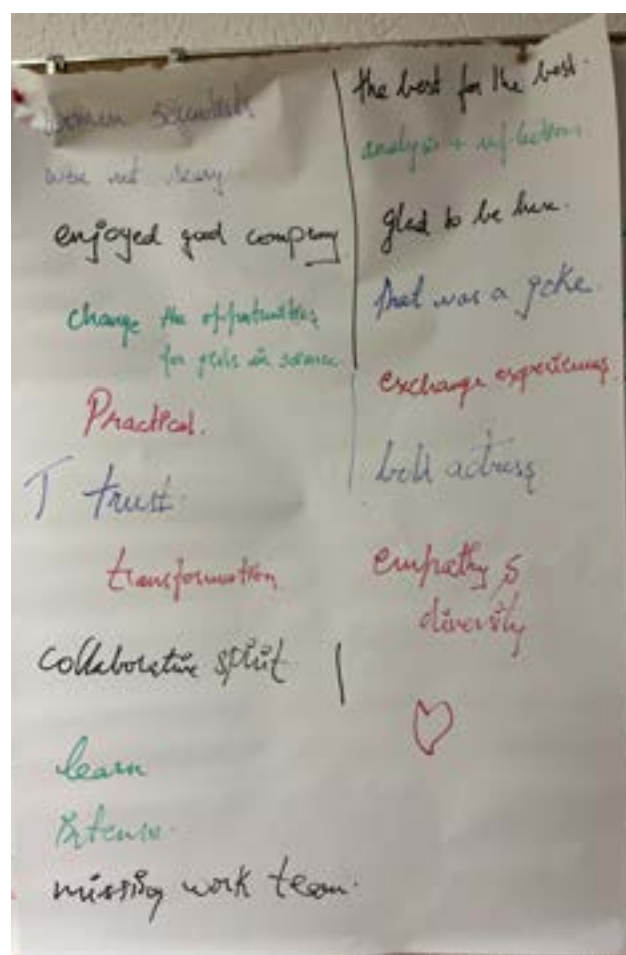 women scientists
were not
enjoyed good company
change the opportunities
for girls in science.
Practical.
T trust.
transformation
collaborative spirit.
learn
intense.
missing work team.
the best for the best.
analysis + reflections
glad to be here.
that was a joke.
exchange experiences
actress
empathy &
diversity